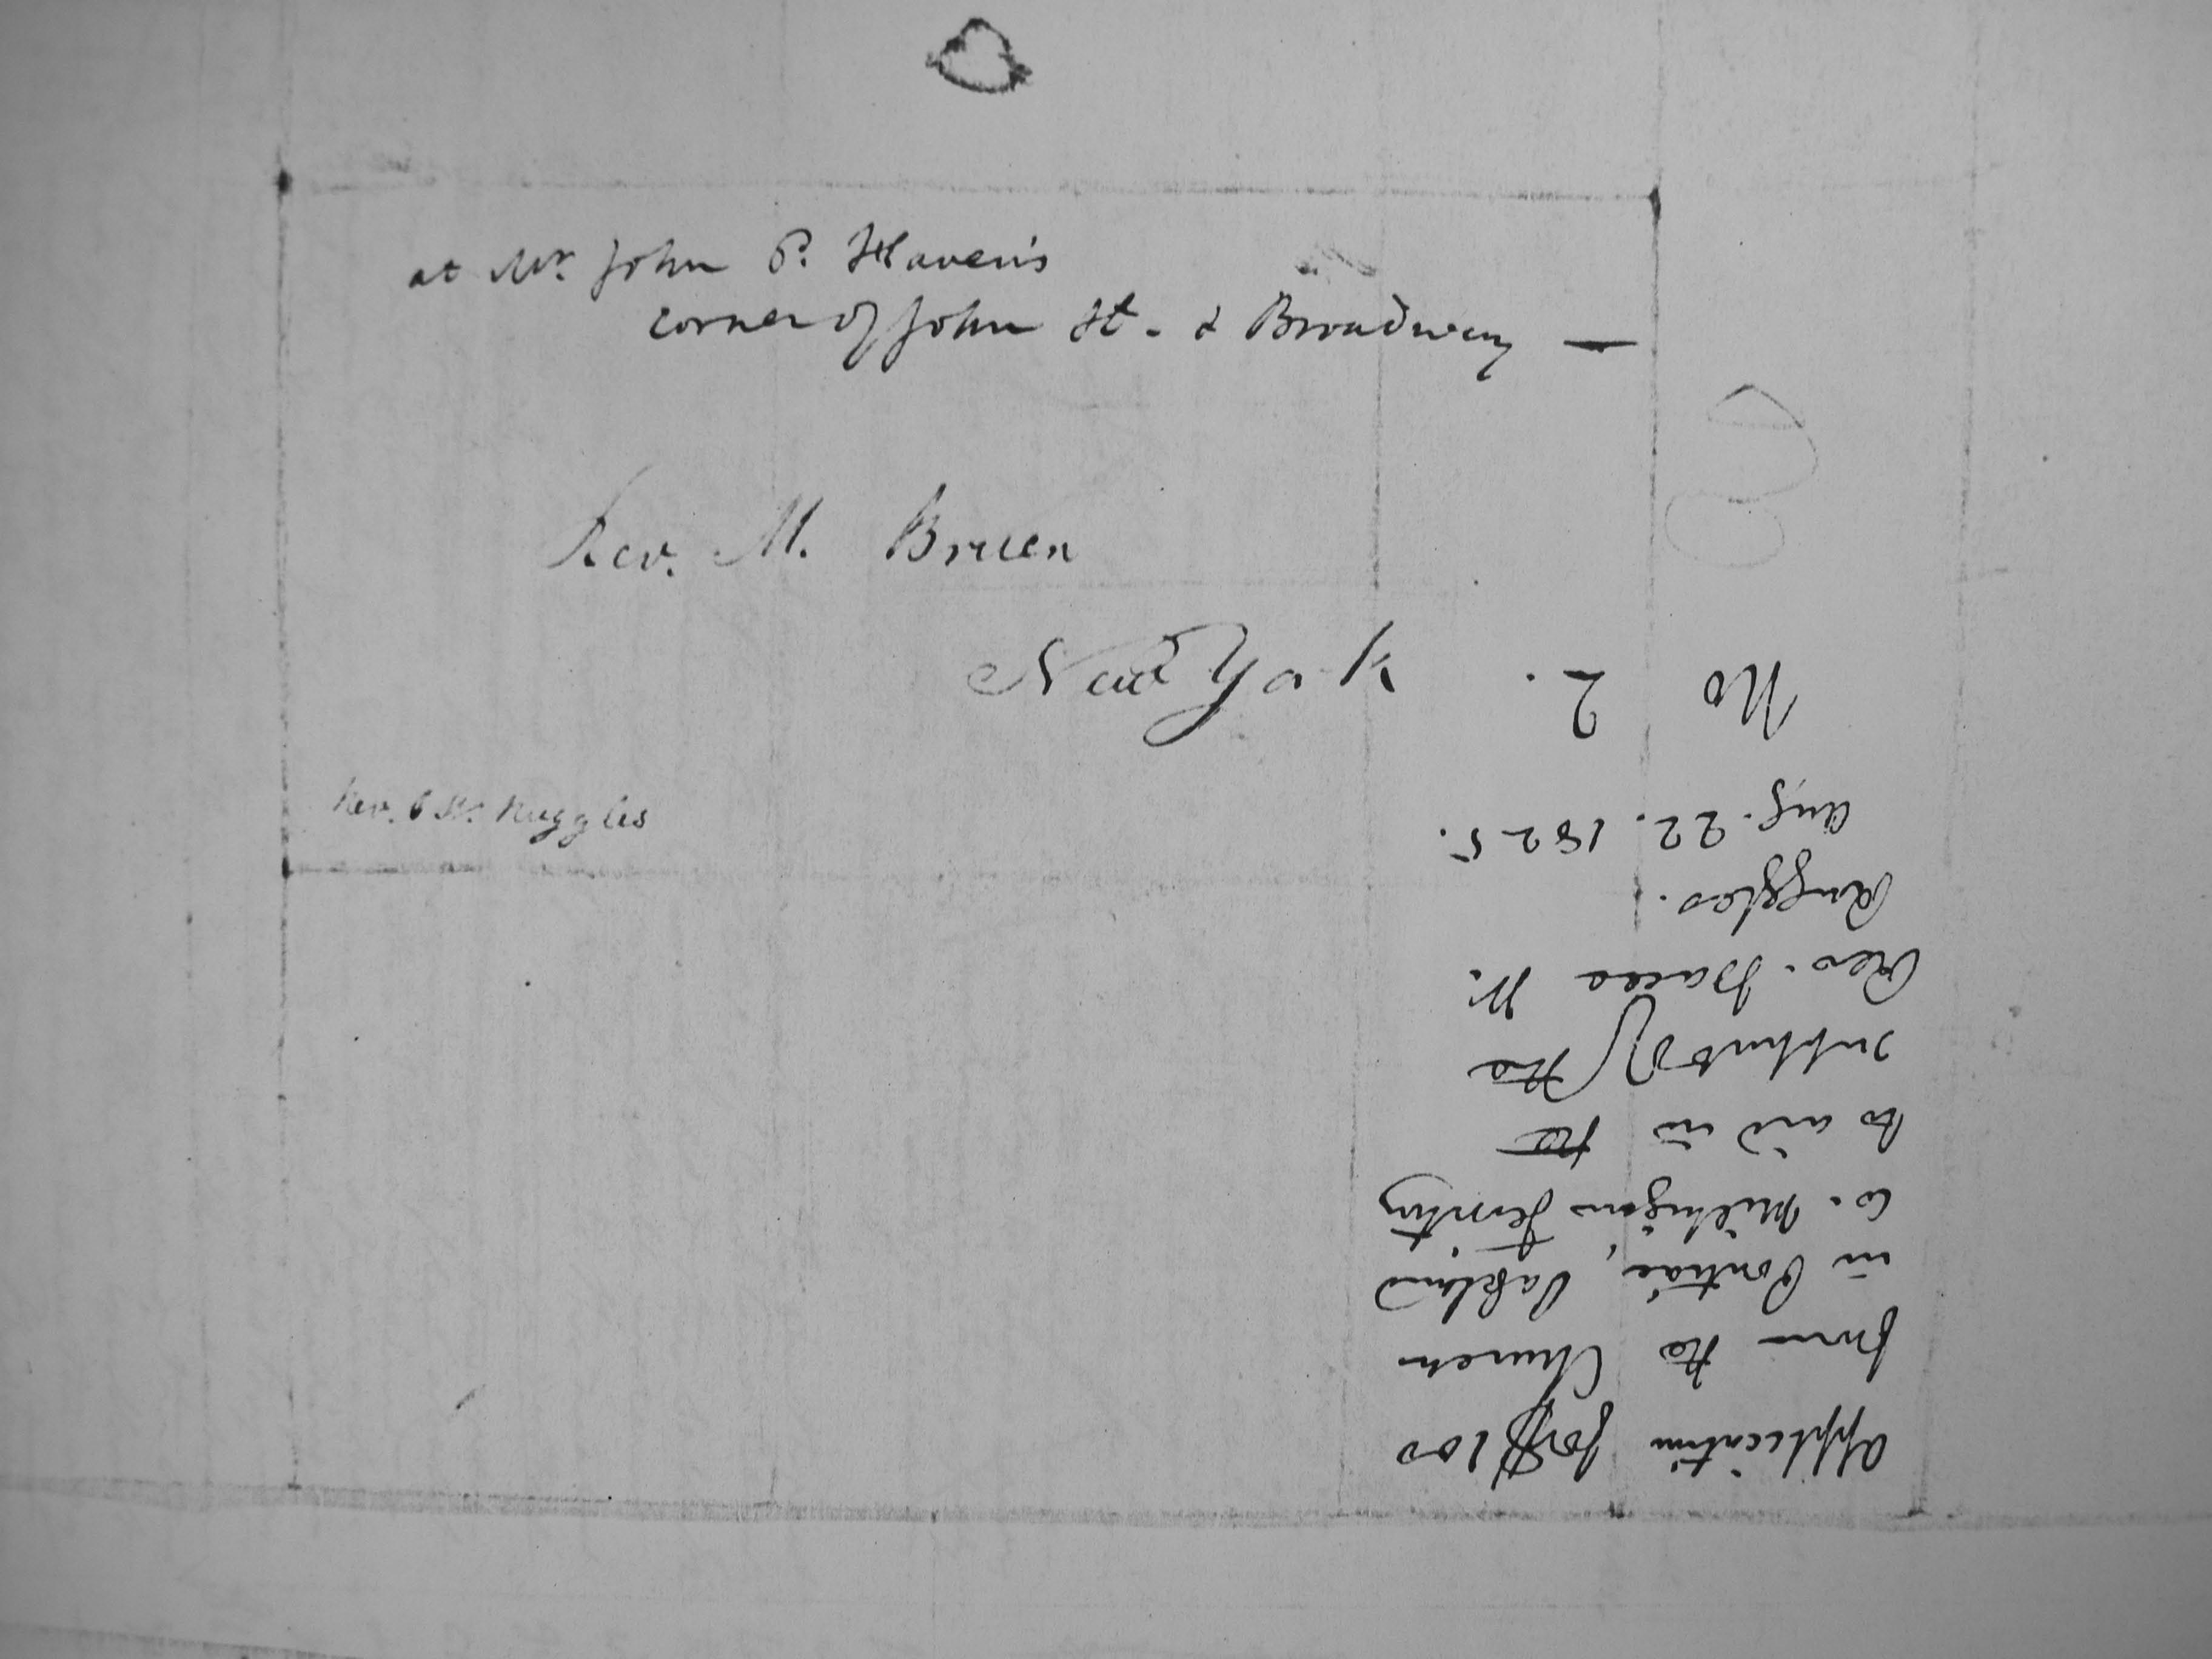 at Mr. John P. Haven's
corner of John St. & Broadway —
Rev. M. Bruen
New York
Rev. Mr. Ruggles
Application for $100
from the Church
in Pontiac, Oakland
Co. Michigan Territory
to aid in the
support of the
Rev. Isaac W.
Ruggles.
Aug. 22. 1825.
No 2.